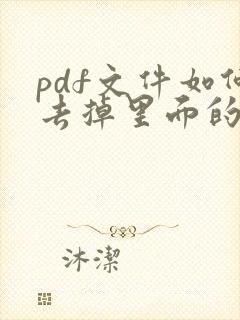 pdf文件如何
去掉里面的
沐潔